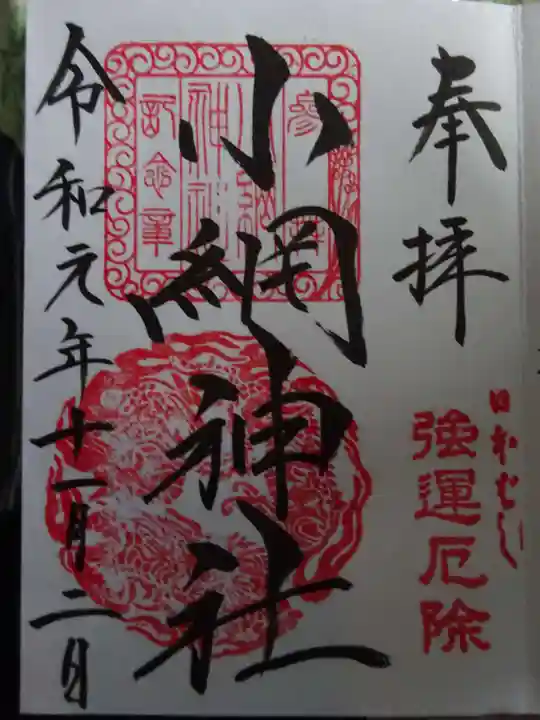 奉拝
日本ばし
強運厄除
小網神社
令和元年十一月二日